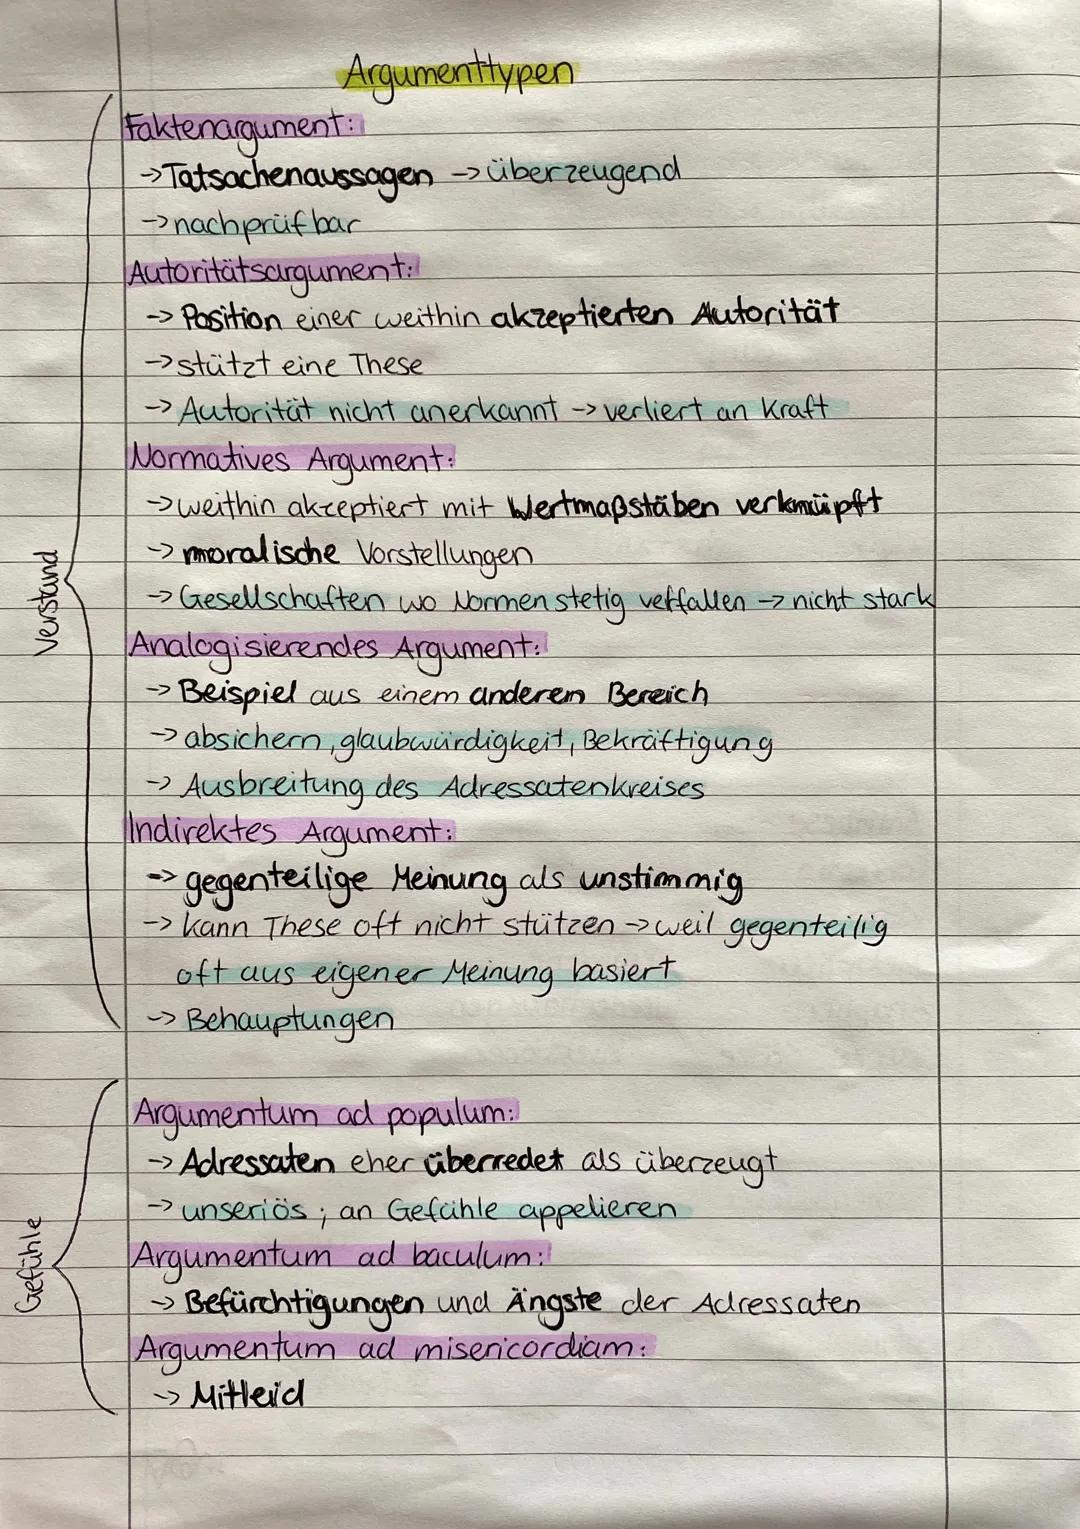 Argumenttypen
Faktenargument:
-> Tatsachenaussagen -> überzeugend
-> nachprüfbar
Autoritätsargument:
-> Position einer weithin akzeptierten Autorität
-> stützt eine These
-> Autorität nicht anerkannt -> verliert an Kraft
Normatives Argument:
-> weithin akzeptiert mit Wertmaßstäben verknüpft
-> moralische Vorstellungen
-> Gesellschaften wo Normen stetig verfallen -> nicht stark
Analogisierendes Argument:
-> Beispiel aus einem anderen Bereich
-> absichern, glaubwürdigkeit, Bekräftigung
-> Ausbreitung des Adressatenkreises
Indirektes Argument:
-> gegenteilige Meinung als unstimmig
-> kann These oft nicht stützen -> weil gegenteilig
oft aus eigener Meinung basiert
-> Behauptungen
Verstand
Argumentum ad populum:
-> Adressaten eher überredet als überzeugt
-> unseriös ; an Gefühle appelieren
Argumentum ad baculum:
-> Befürchtigungen und Ängste der Adressaten
Argumentum ad misericordiam:
-> Mitleid
Gefühle